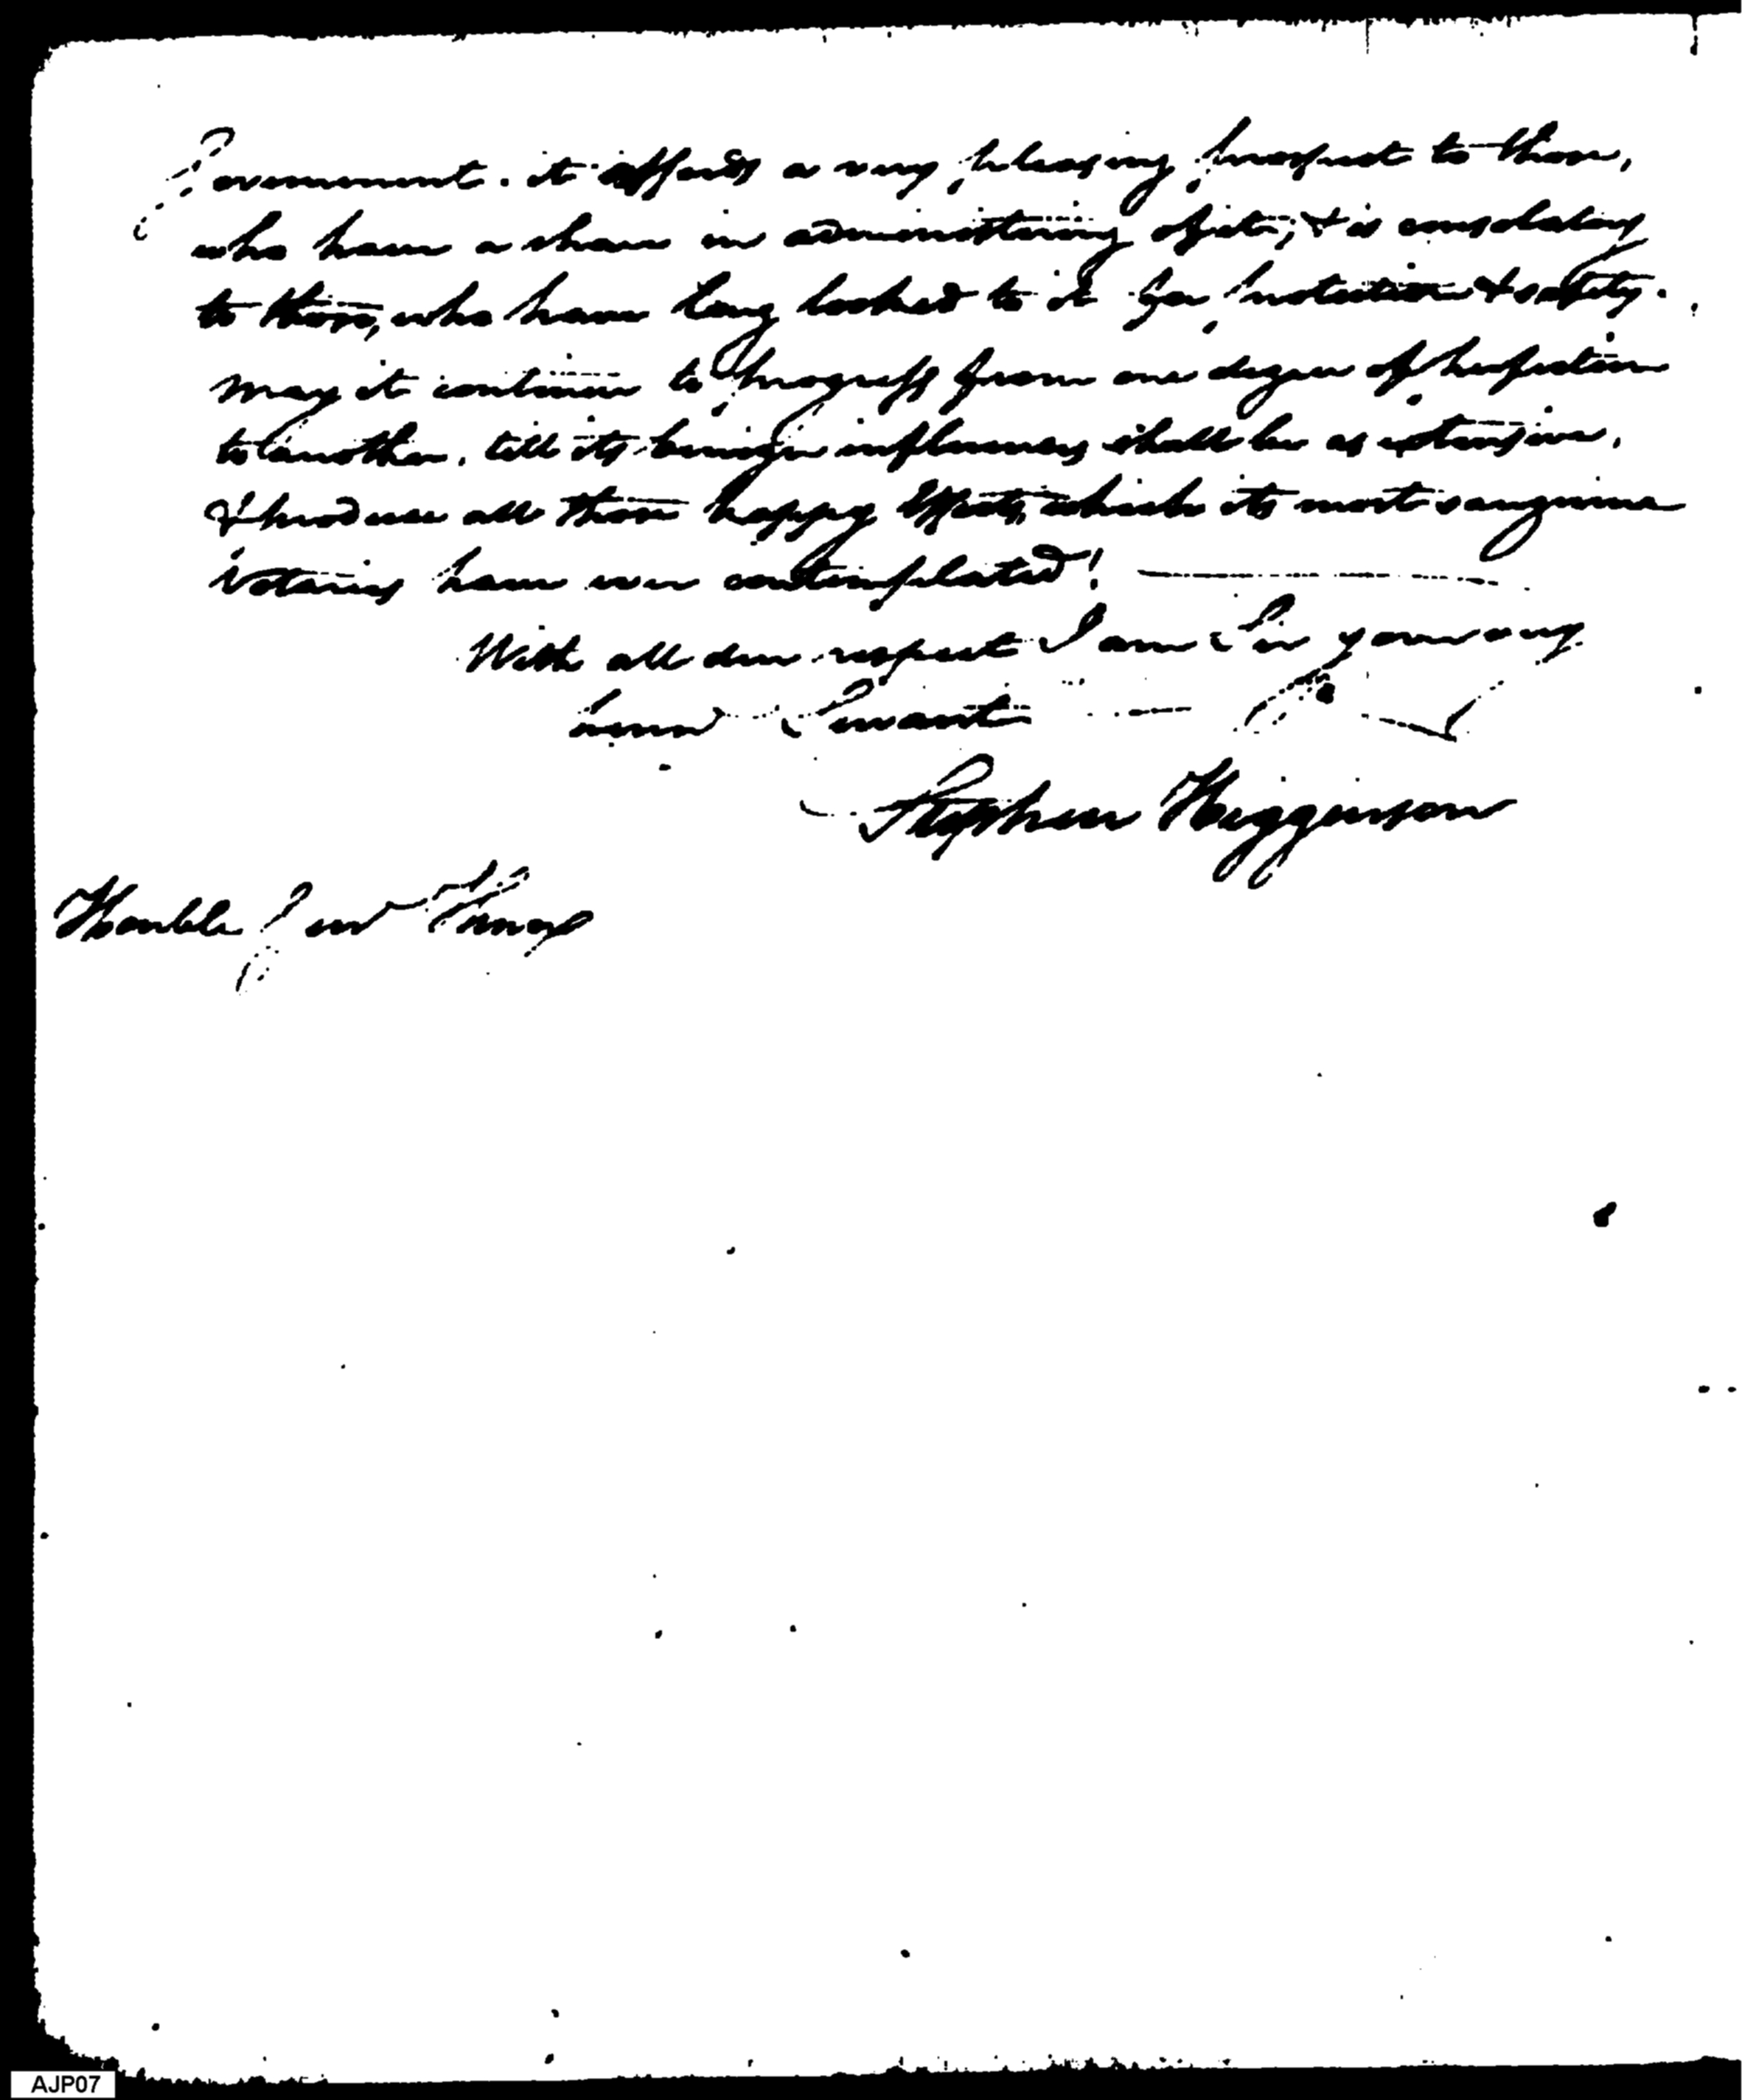 Government. it affords a very pleasing prospect to them,
who have a share in administring of it; & is consolatory
to those, who have long looked to it for protection & safety.
may it continue to progress from one degree of perfection
to another, till its benign influences shall be as extensive,
& produce all those happy effects, which its most sanguine
votaries have ever contemplated!
With all due respect I am Sir your very
hume Servant
Stephen Higginson
Honble
AJP07